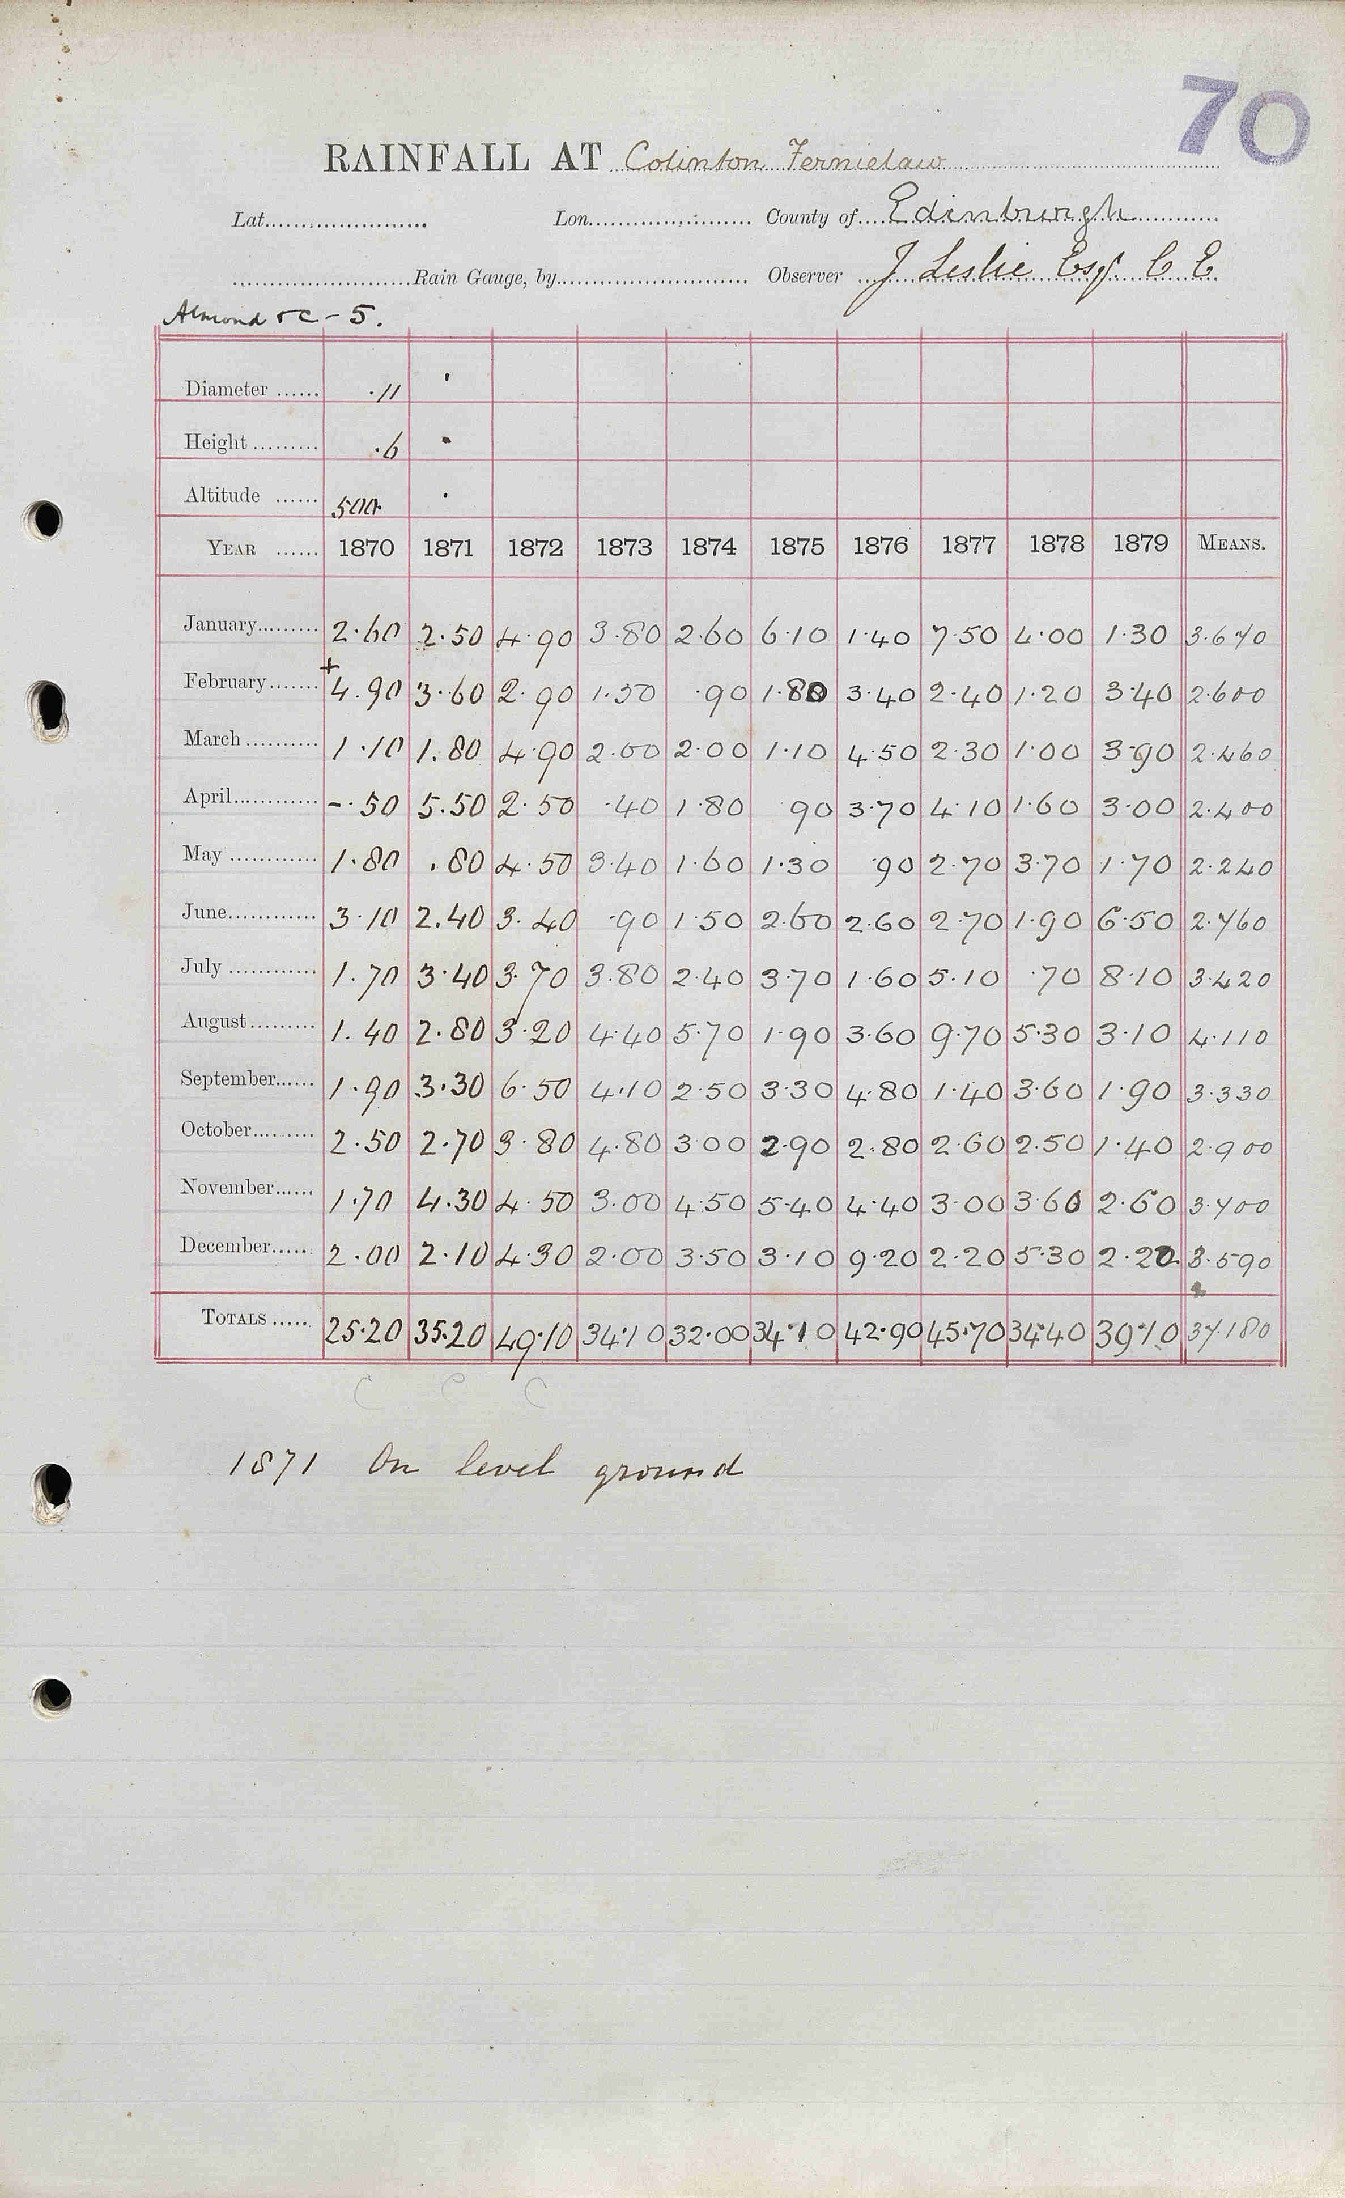 70
RAINFALL AT Colinton Fernielaw
Lat. Lon. County of Edinburgh
Rain Gauge, by Observer J Leslie Esqr C E
Almond &c - 5.
Diameter ·11 ·
Height ·6 ·
Altitude 500 ·
YEAR 1870 1871 1872 1873 1874 1875 1876 1877 1878 1879 MEANS.
January 2·60 2.50 4·90 3·80 2·60 6·10 1·40 7·50 4·00 1·30 3·670
February +4.90 3·60 2·90 1·50 ·90 1·80 3·40 2·40 1·20 3·40 2·600
March 1·10 1.80 4·90 2·00 2·00 1·10 4·50 2·30 1·00 3·90 2·460
April -·50 5.50 2·50 ·40 1·80 90 3·70 4·10 1·60 3·00 2·400
May 1·80 .80 4·50 3·40 1·60 1·30 ·90 2·70 3·70 1·70 2·240
June 3·10 2.40 3·40 ·90 1·50 2·60 2·60 2·70 1·90 6·50 2·760
July 1·70 3·40 3·70 3·80 2·40 3·70 1·60 5·10 ·70 8·10 3·420
August 1.40 2·80 3·20 4·40 5·70 1·90 3·60 9·70 5·30 3·10 4·110
September 1·90 3·30 6·50 4·10 2·50 3·30 4·80 1·40 3·60 1·90 3·330
October 2·50 2·70 3·80 4·80 3·00 2·90 2·80 2·60 2·50 1·40 2·900
November 1·70 4.30 4·50 3·00 4·50 5·40 4·40 3·00 3·60 2·60 3·700
December 2·00 2·10 4·30 2·00 3·50 3·10 9·20 2·20 5·30 2·20 3·590
TOTALS 25·20 35·20 49·10 34·10 32·00 34·10 42·90 45·70 34·40 39·10 37·180
C C C
1871 On level ground